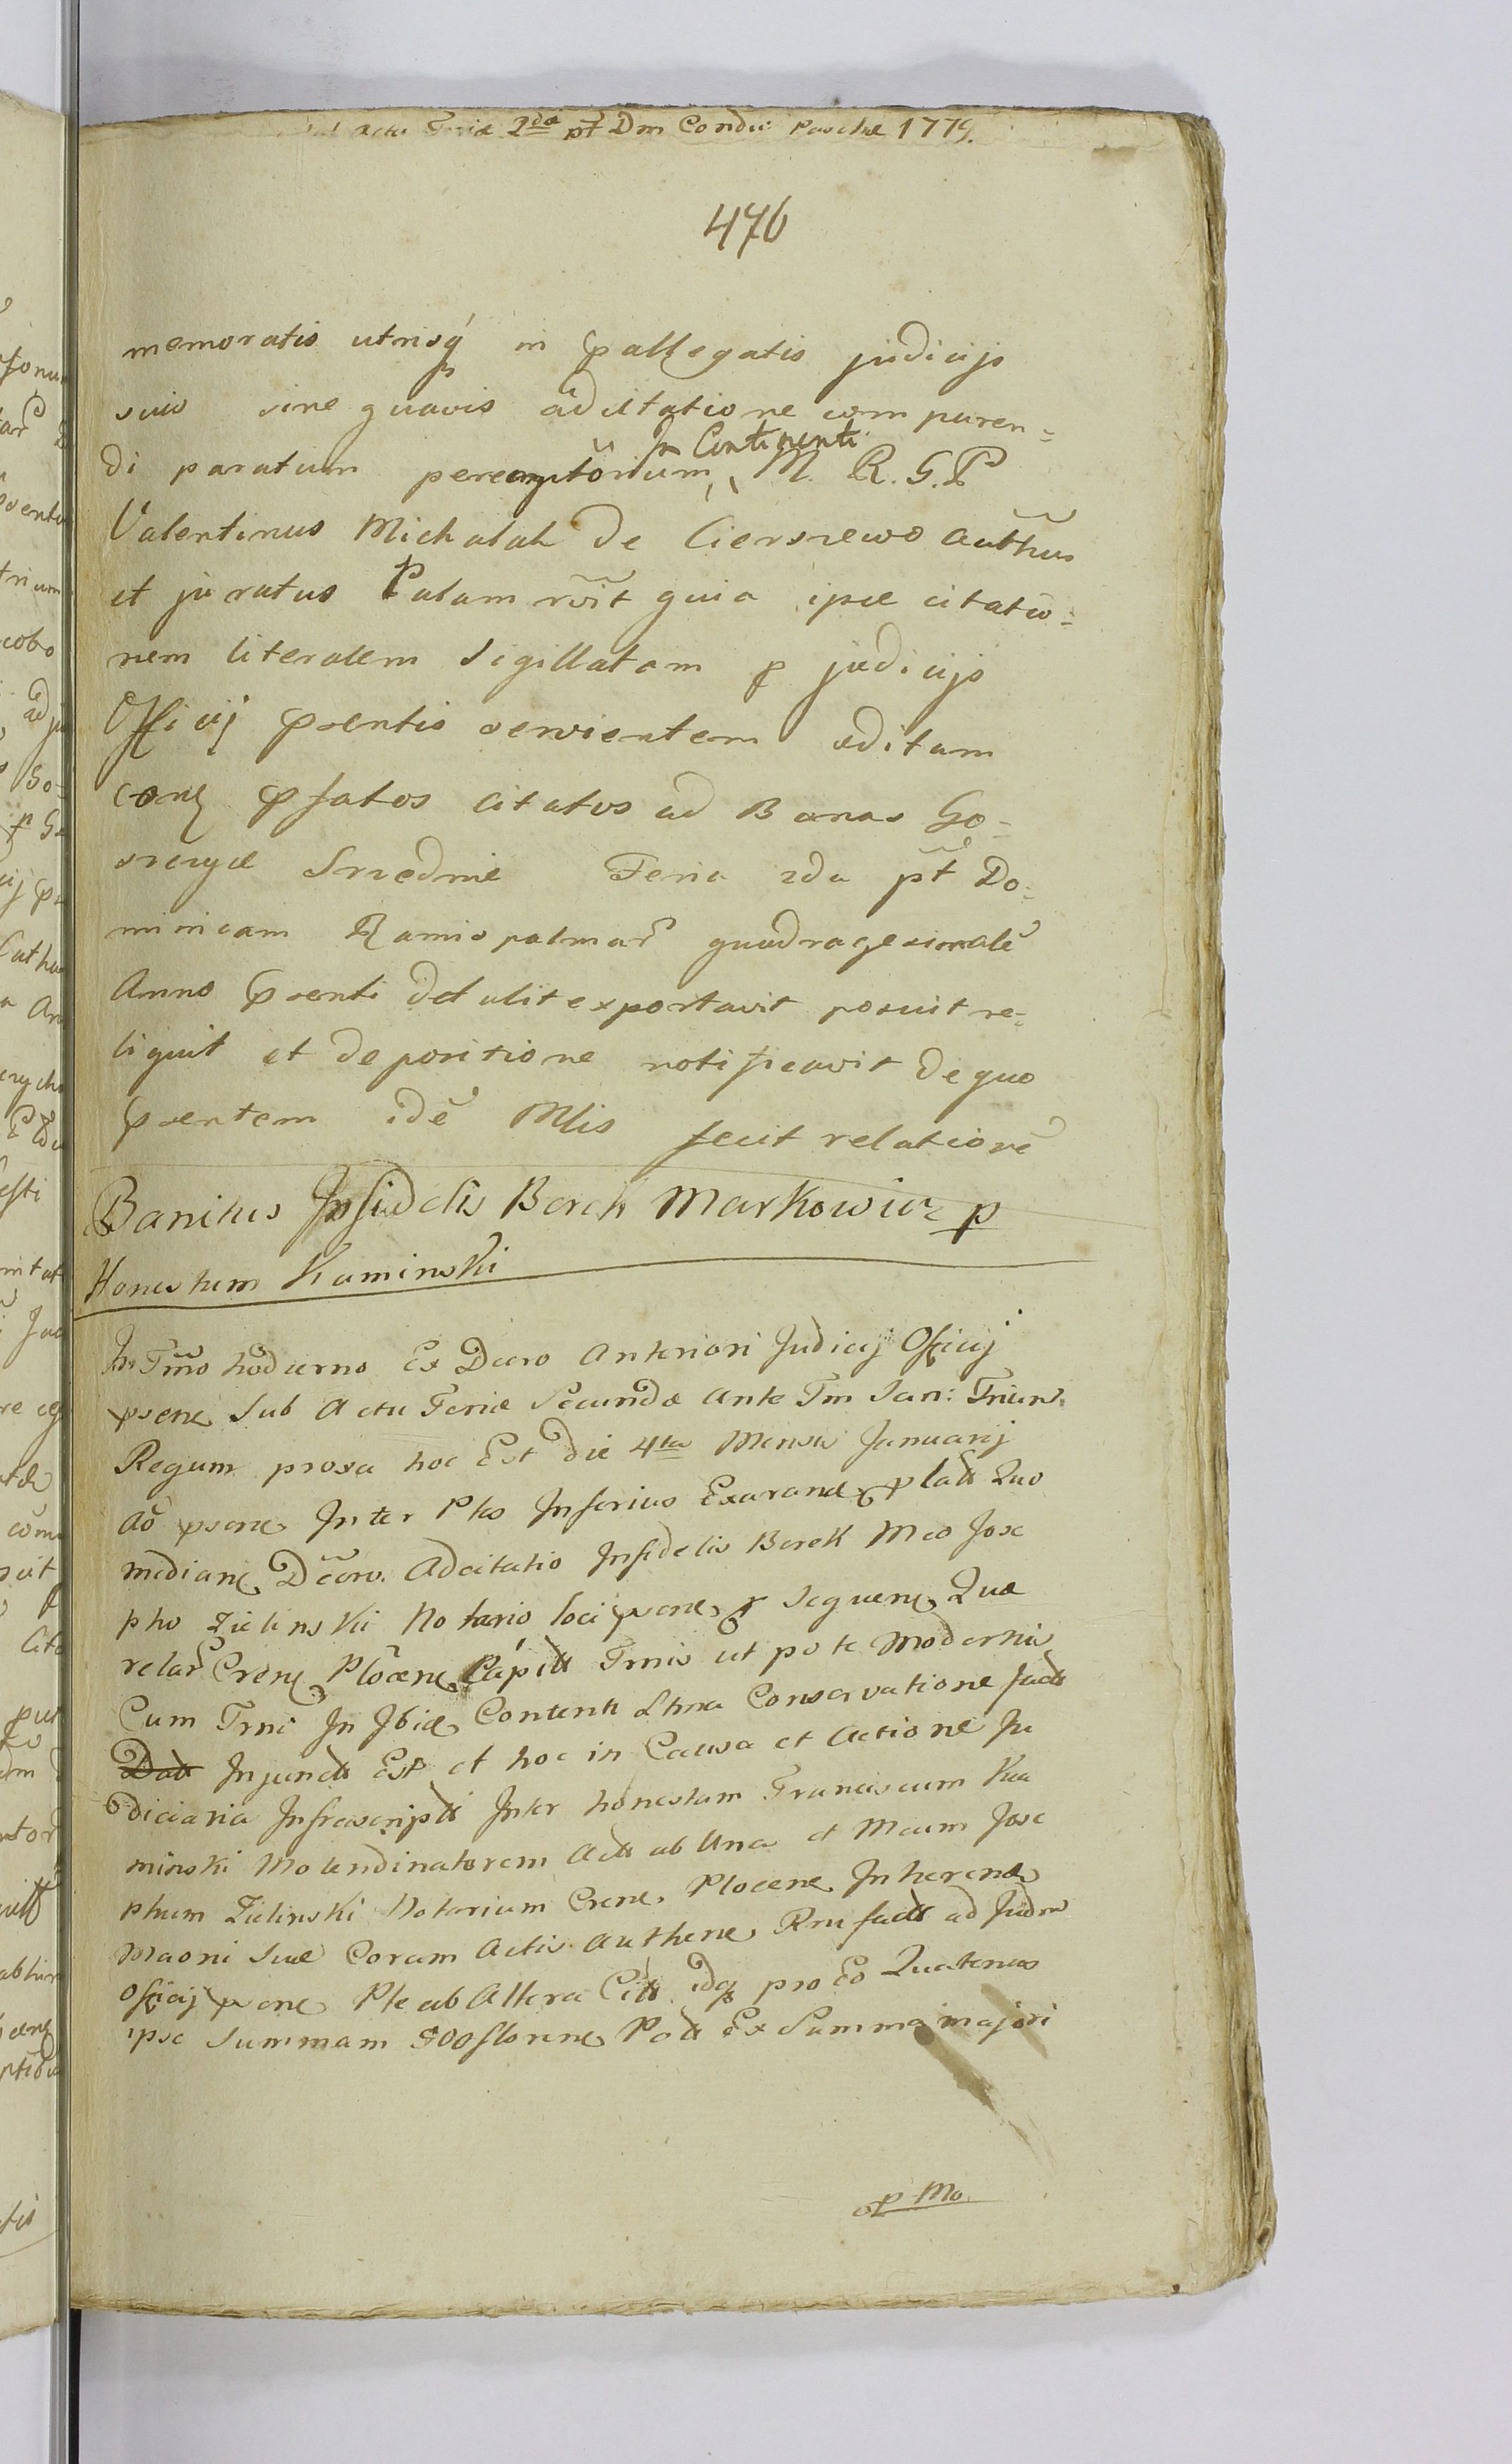 Actu Feriæ 2da pt Dm Condu: Paschæ 1779.
476
memoratis utrisq in pallegatis judicijs
suis sine quavis adcitatione comparen=
di paratum peremptorium, In Continenti M. R. G. P
Valentinus Michalak de Cierszewo Authus
et juratus Palam rvit quia ipse citatio=
nem literalem Sigillatam p judicijs
Officij psentis servientem editam
conq pfatos citatos ad Bona Go=
szczyce Srzednie Feria 2da pt Do=
minicam Ramispalmar quadragesimale
Anno psenti detulit exportavit posuit re=
liquit et depositione notificavit de quo
psentem ide Mlis fecit relatione
Banitus Infidelis Berek Markowicz p
Honestum Kaminski
In Tmo hodierno Ex Decro Anteriori Judicij Officij
psene Sub Actu Feriæ Secundæ Ante Fm San: Trium
Regum proxa hoc Est die 4ta Mensis Januarij
Ao psene Inter Ptes Inferius Exarand plati Quo
mediane Decro. Adcitatio Infidelis Berek Meo Jose
pho Zielinski Notario loci psene & Sequene Quæ
relar Crene Plocene Capitt Trnis ut pote Modernis
Cum Trni In Ibid Contenti Ltma Conservatione fact
Datt Injunctt Est et hoc in Causa et Actione Ju
diciaria Infrascriptt Inter honestum Franciscum Ka
minski Molendinatorem Actt ab Una et Meum Jose
phum Zielinski Notarium Crene. Plocene Inherend
Maoni Suæ Coram Actis Authene Rnu factt ad Judm
Officij psene Pte ab Altera Citt idq pro Eo Quatenus
ipse Summam 900 florene Pott Ex Summa majori